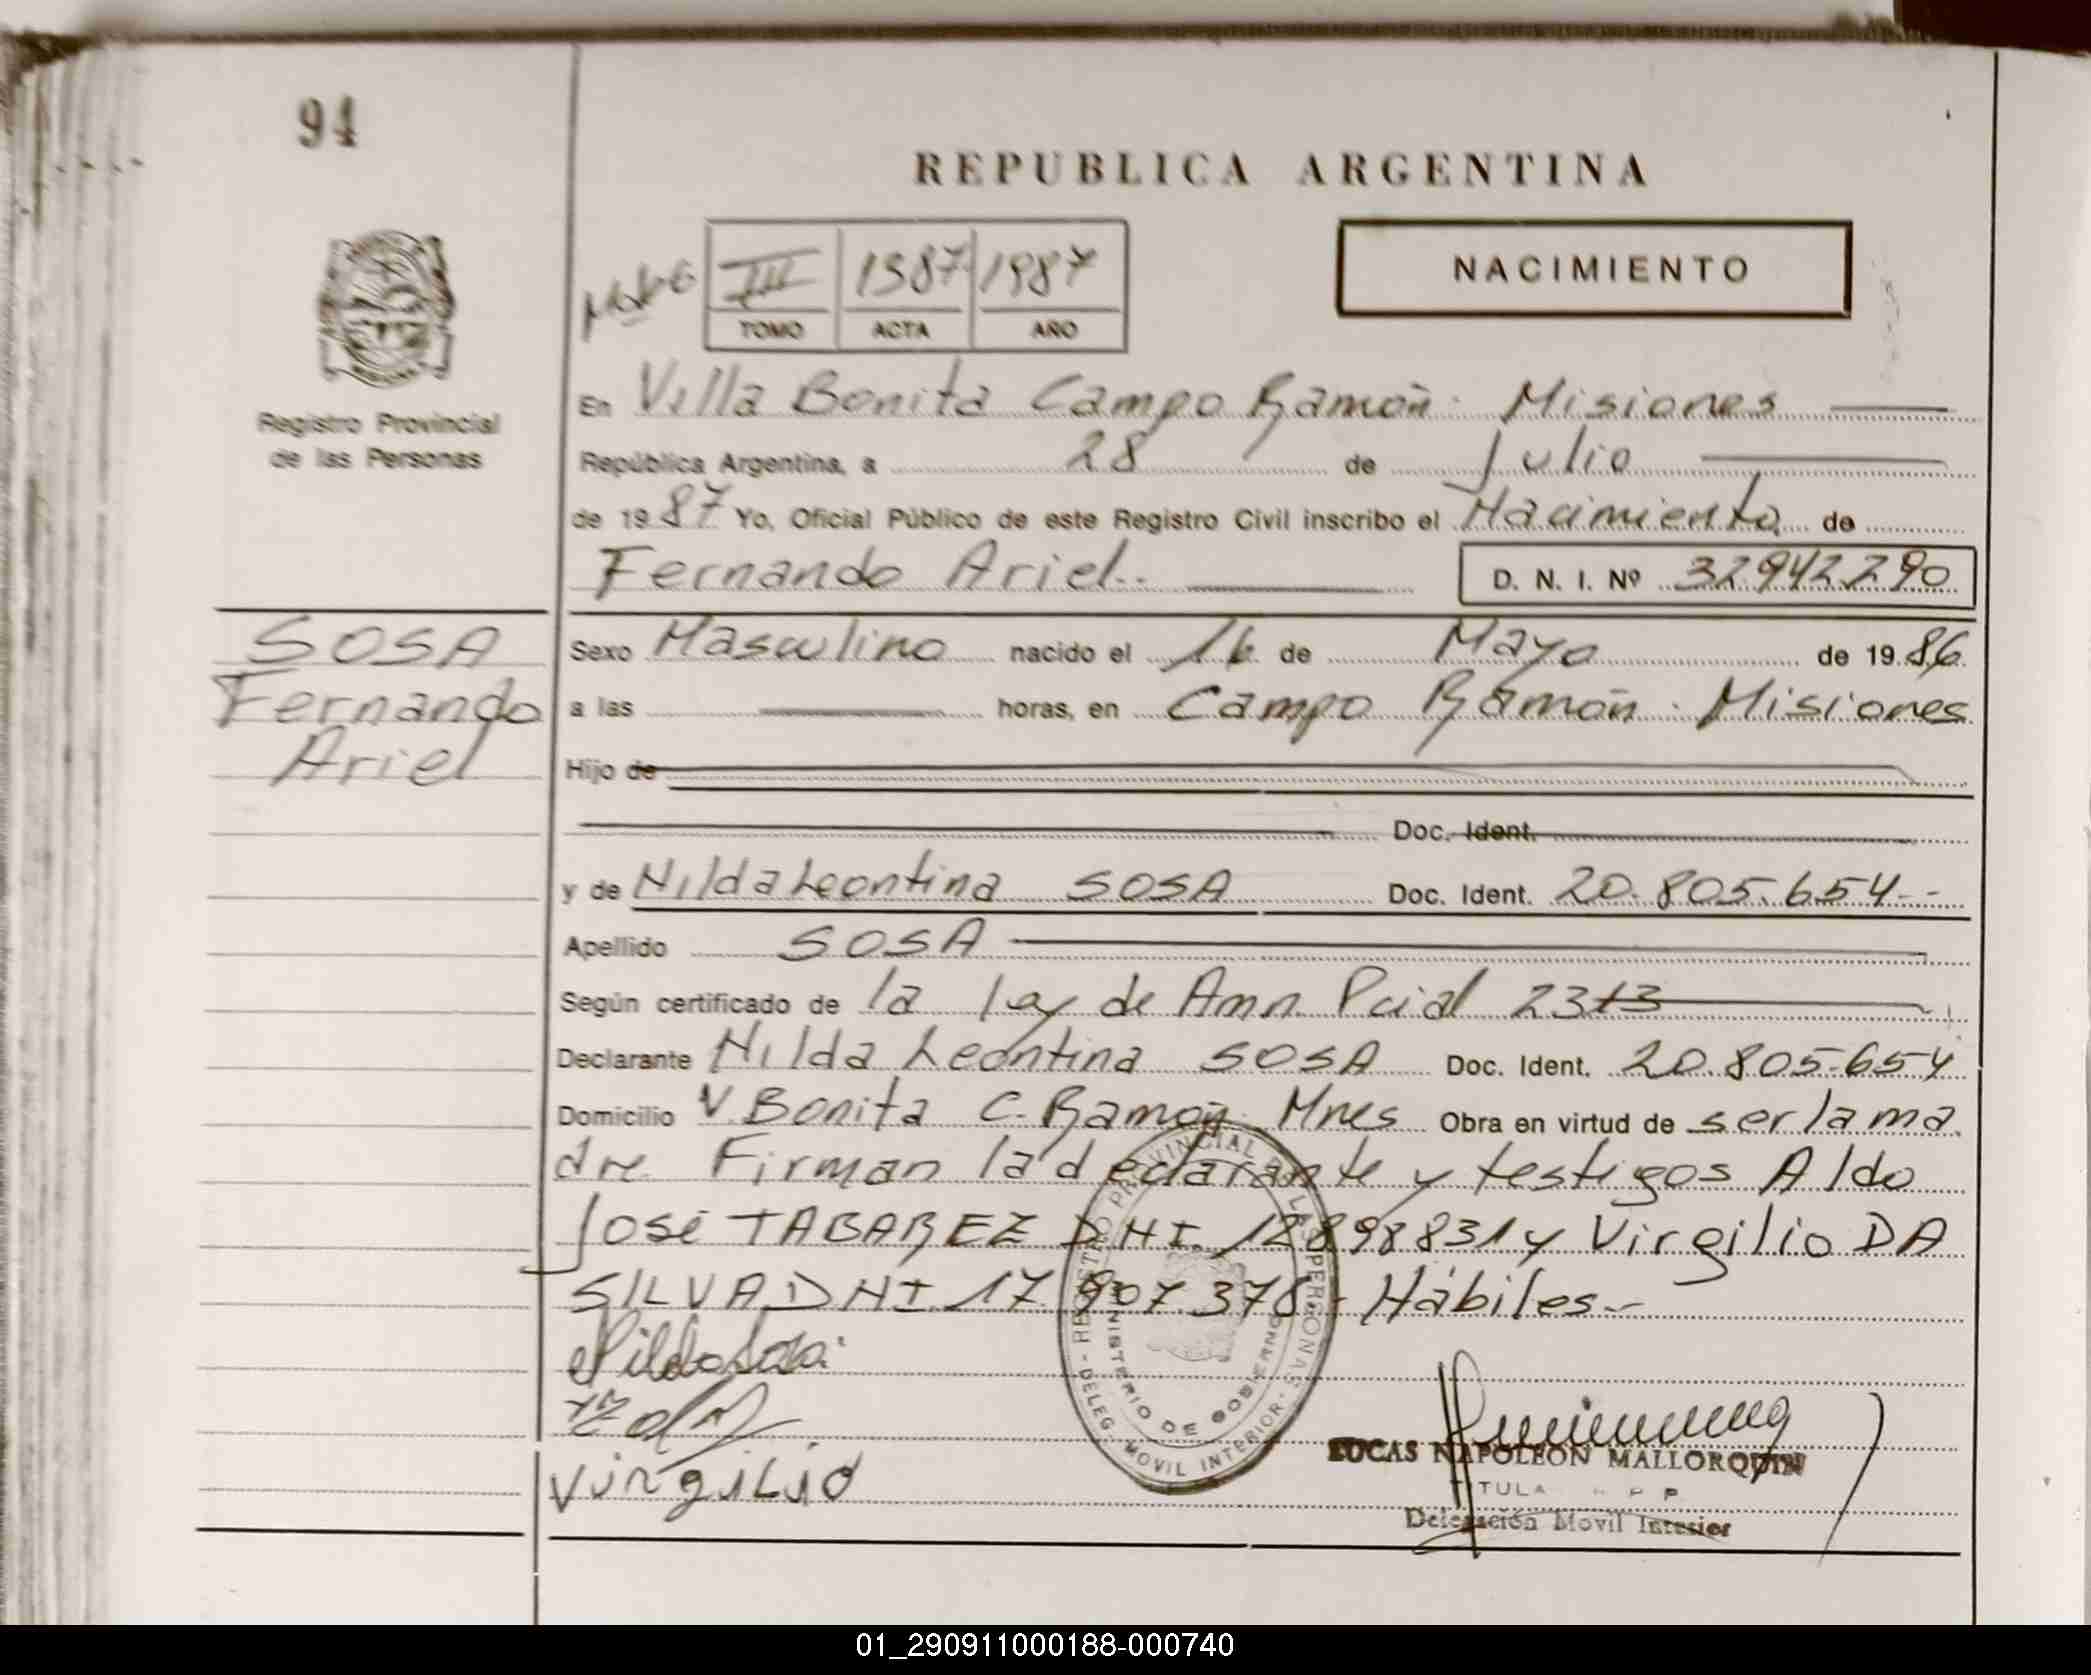 94
REPUBLICA ARGENTINA
III 1387 1987
TOMO ACTA AÑO
NACIMIENTO
Registro Provincial
de las Personas
En Villa Bonita Campo Ramón. Misiones
República Argentina, a 28 de Julio
de 1987 Yo, Oficial Público de este Registro Civil inscribo el Nacimiento de
Fernando Ariel.. D. N. I. Nº 32942290
SOSA
Fernando
Ariel
Sexo Masculino nacido el 16 de Mayo de 1986.
a las horas, en Campo Ramón. Misiones
Hijo de
Doc. Ident.
y de Nilda Leontina SOSA Doc. Ident. 20.805.654--
Apellido SOSA
Según certificado de la ley de Amn. Pcial 2313
Declarante Nilda Leontina SOSA Doc. Ident. 20.805.654
Domicilio V Bonita C. Ramón. Mnes Obra en virtud de ser la ma
dre. Firman la declarante y testigos Aldo
José TABAREZ DNI. 12898831 y Virgilio DA
SILVA DNI. 17.907.378. Hábiles.-
Nilda Sosa
Virgilio
REGISTRO PROVINCIAL DE LAS PERSONAS
MINISTERIO DE GOBIERNO
- DELEG. MOVIL INTERIOR -
LUCAS NAPOLEON MALLORQUIN
Delegación Movil Interior
01_290911000188-000740